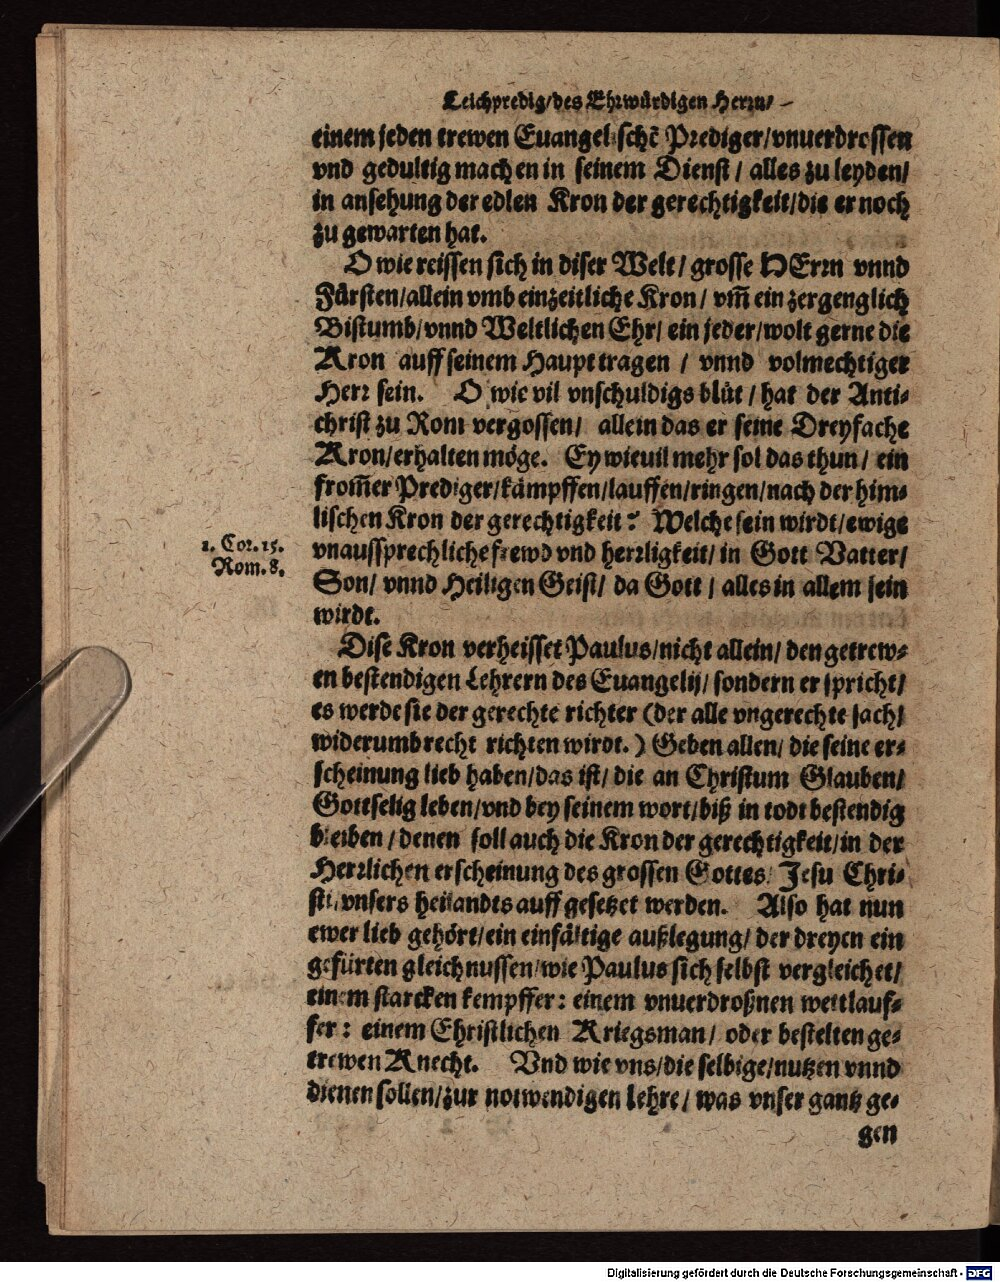 Leichpredig/des Ehrwürdigen Herrn/
einem jeden trewen Euangelischē Prediger/vnuerdrossen
vnd gedultig machen in seinem Dienst/ alles zu leyden/
in ansehung der edlen Kron der gerechtigkeit/die er noch
zu gewarten hat.
O wie reissen sich in diser Welt/ grosse HErrn vnnd
Fürsten/allein vmb ein zeitliche Kron/ vm̄ ein zergenglich
Bistumb/vnnd Weltlichen Ehr/ ein jeder/wolt gerne die
Kron auff seinem Haupt tragen / vnnd volmechtiger
Herr sein. O wie vil vnschuldigs blůt/ hat der Anti-
christ zu Rom vergossen/ allein das er seine Dreyfache
Kron/erhalten möge. Ey wieuil mehr sol das thun/ ein
from̄er Prediger/kämpffen/lauffen/ringen/nach der him-
lischen Kron der gerechtigkeit? Welche sein wirdt/ewige
1. Cor. 15.
Rom. 8.
vnaussprechliche frewd vnd herrligkeit/ in Gott Vatter/
Son/ vnnd Heiligen Geist/ da Gott / alles in allem sein
wirdt.
Dise Kron verheisset Paulus/nicht allein/ den getrew-
en bestendigen Lehrern des Euangelij/ sondern er spricht/
es werde sie der gerechte richter (der alle vngerechte sach/
widerumb recht richten wirdt.) Geben allen/ die seine er-
scheinung lieb haben/das ist/ die an Christum Glauben/
Gottselig leben/vnd bey seinem wort/biß in todt bestendig
bleiben / denen soll auch die Kron der gerechtigkeit/in der
Herrlichen erscheinung des grossen Gottes/ Jesu Chri-
sti/vnsers heilandts auff gesetzet werden. Also hat nun
ewer lieb gehört/ein einfältige außlegung/ der dreyen ein
gefürten gleichnussen/wie Paulus sich selbst vergleichet/
einem starcken kempffer: einem vnuerdroßnen wettlauf-
fer: einem Christlichen Kriegsman/ oder bestelten ge-
trewen Knecht. Vnd wie vns/die selbige/nutzen vnnd
dienen sollen/zur notwendigen lehre/ was vnser gantz ge-
gen
Digitalisierung gefördert durch die Deutsche Forschungsgemeinschaft - DFG